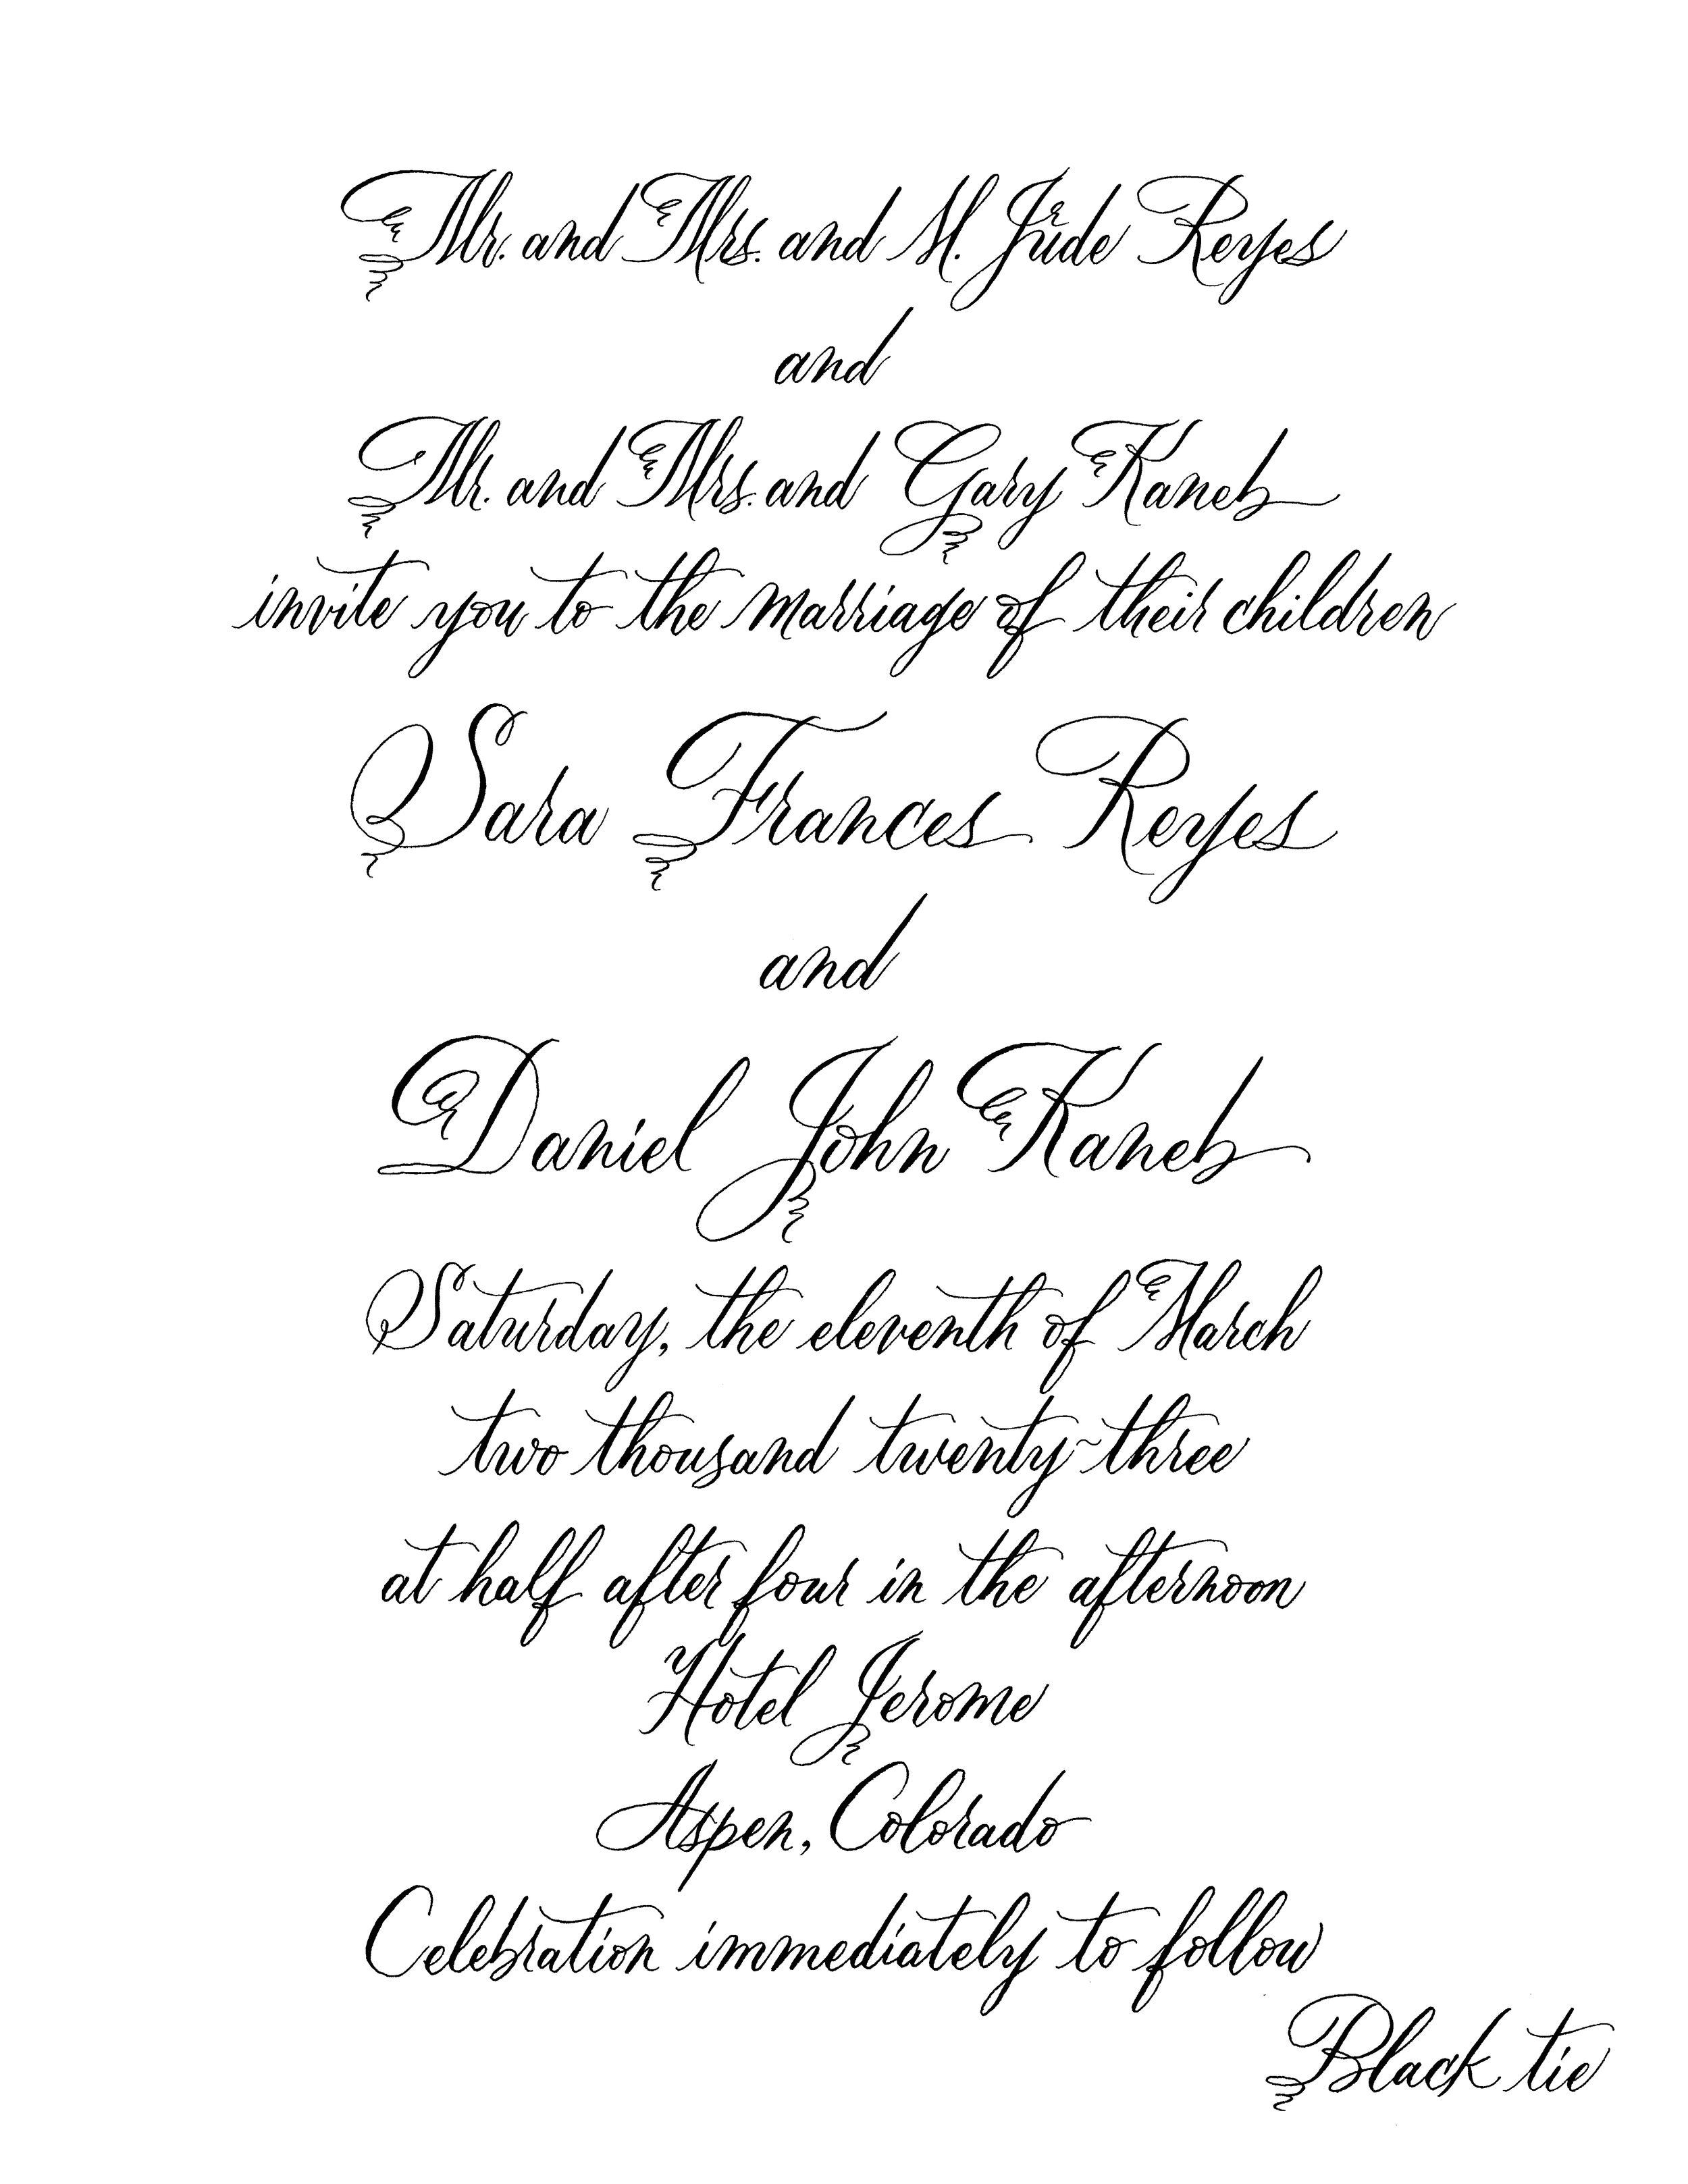 Mr. and Mrs. and M. Jude Reyes
and
Mr. and Mrs. and Gary Kaneb
invite you to the marriage of their children
Sara Frances Reyes
and
Daniel John Kaneb
Saturday, the eleventh of March
two thousand twenty-three
at half after four in the afternoon
Hotel Jerome
Aspen, Colorado
Celebration immediately to follow
Black tie